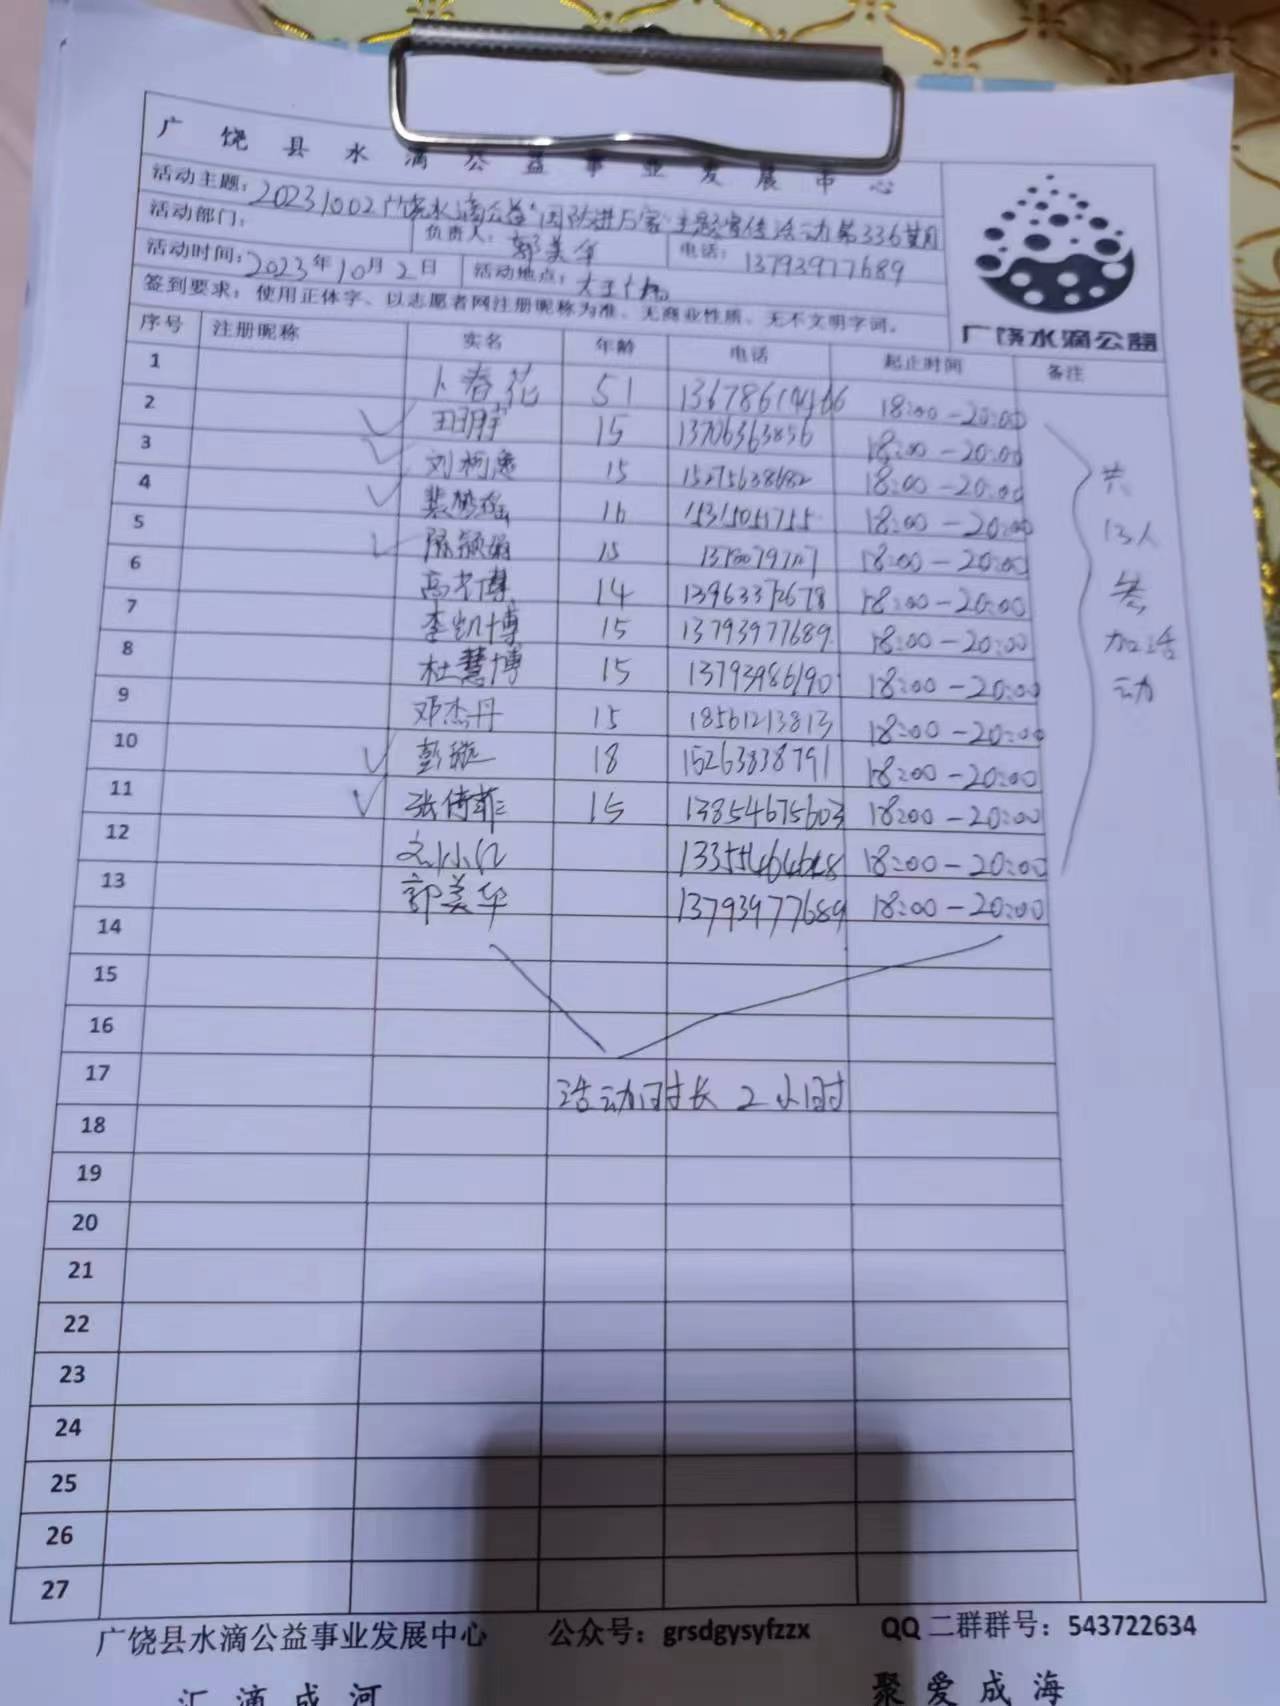 广饶县水滴公益事业发展中心
活动主题：20231002广饶水滴公益"国防进万家"主题宣传活动第336期
活动部门： 负责人：郭美华 电话：13793977689
活动时间：2023年10月2日 活动地点：
签到要求：使用正体字、以志愿者网注册昵称为准、无商业性质、无不文明字词。
广饶水滴公益
序号 注册昵称 实名 年龄 电话 起止时间 备注
1 卜春花 51 18:00-20:00
2 15 13706363856 18:00-20:00
3 15 15275638682 18:00-20:00
4 16 18:00-20:00
5 15 18:00-20:00
6 14 13963372678 18:00-20:00
7 李凯博 15 13793977689 18:00-20:00
8 杜慧博 15 13793986190 18:00-20:00
9 邓杰丹 15 18561213813 18:00-20:00
10 彭璇 18 15263838791 18:00-20:00
11 张倩菲 15 13854675603 18:00-20:00
12 18:00-20:00
13 郭美华 13793977689 18:00-20:00
共
13人
参
加活
动
14
15
16
17 活动时长 2小时
18
19
20
21
22
23
24
25
26
27
广饶县水滴公益事业发展中心 公众号：grsdgysyfzzx QQ二群群号：543722634
汇滴成河 聚爱成海